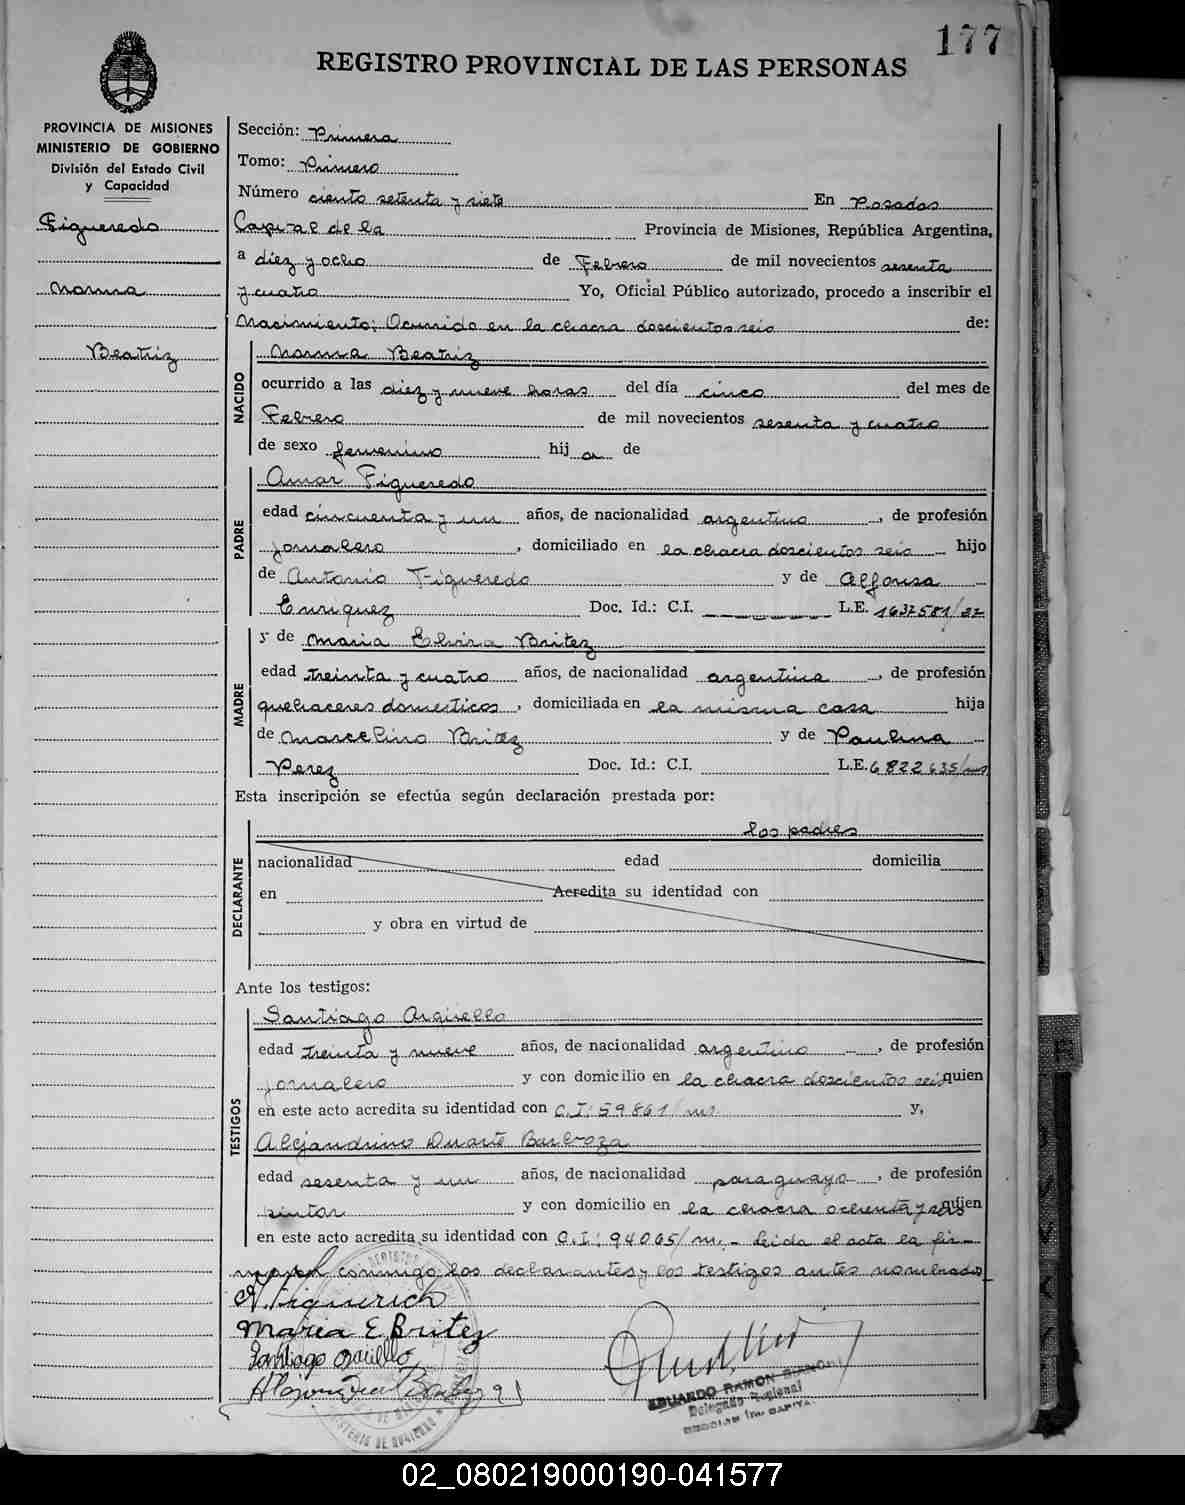 177
REGISTRO PROVINCIAL DE LAS PERSONAS
PROVINCIA DE MISIONES
MINISTERIO DE GOBIERNO
División del Estado Civil
y Capacidad
Figueredo
Norma
Beatriz
Sección: Primera
Tomo: Primero
Número ciento setenta y siete En Posadas
Capital de la Provincia de Misiones, República Argentina,
a diez y ocho de Febrero de mil novecientos sesenta
y cuatro Yo, Oficial Público autorizado, procedo a inscribir el
Nacimiento; Ocurrido en la chacra doscientos seis de:
NACIDO
Norma Beatriz
ocurrido a las diez y nueve horas del día cinco del mes de
Febrero de mil novecientos sesenta y cuatro
de sexo femenino hija de
PADRE
Amor Figueredo
edad cincuenta y un años, de nacionalidad argentino, de profesión
jornalero, domiciliado en la chacra doscientos seis hijo
de Antonio Figueredo y de Alfonsa
Enriquez Doc. Id.: C.I. L.E. 1637581/
MADRE
y de Maria Elvira Britez
edad treinta y cuatro años, de nacionalidad argentina, de profesión
quehaceres domesticos, domiciliada en la misma casa hija
de Marcelino Britez y de Paulina
Perez Doc. Id.: C.I. L.E. 6822635/ms
Esta inscripción se efectúa según declaración prestada por:
DECLARANTE
los padres
nacionalidad edad domicilia
en Acredita su identidad con
y obra en virtud de
Ante los testigos:
TESTIGOS
Santiago Argüello
edad treinta y nueve años, de nacionalidad argentino, de profesión
jornalero y con domicilio en la chacra doscientos seis quien
en este acto acredita su identidad con C.I: 59861/ms y,
Alejandrino Duarte Barboza
edad sesenta y un años, de nacionalidad paraguayo, de profesión
pintor y con domicilio en la chacra ochenta y seis quien
en este acto acredita su identidad con C.I: 94065/m.- Leida el acta la fir-
man conmigo los declarantes y los testigos antes nombrados
Maria E Britez
Santiago
EDUARDO RAMON
Delegado Regional
02_080219000190-041577